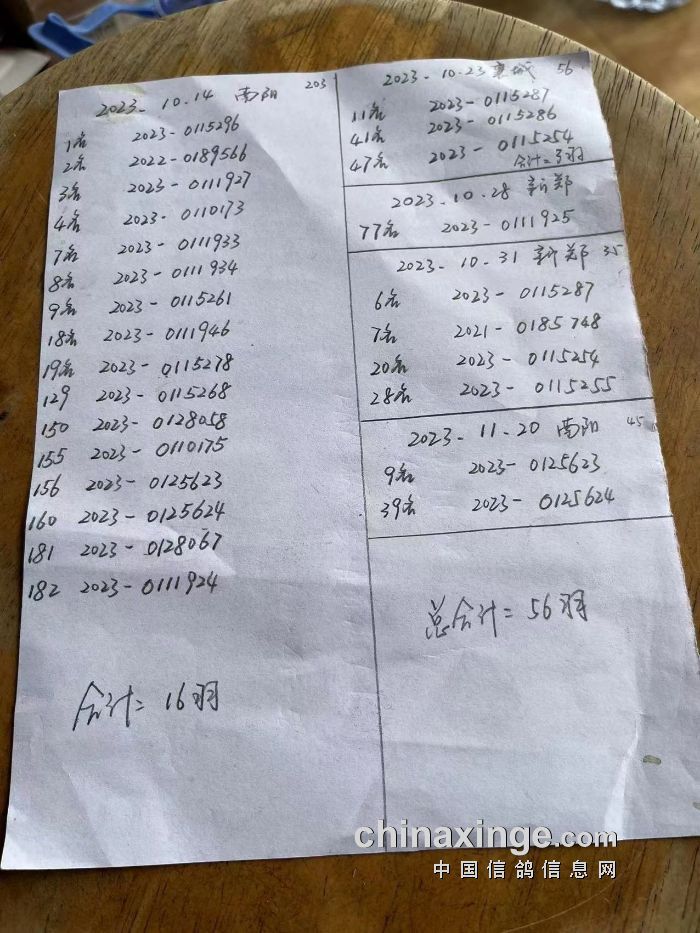 2023-10.14 南阳 203
1名 2023-0115296
2名 2022-0189566
3名 2023-0111927
4名 2023-0110173
7名 2023-0111933
8名 2023-0111934
9名 2023-0115261
18名 2023-0111946
19名 2023-0115278
129 2023-0115268
150 2023-0128058
155 2023-0110175
156 2023-0125623
160 2023-0125624
181 2023-0128067
182 2023-0111924
合计=16羽
2023-10.23 襄城 56
11名 2023-0115287
41名 2023-0115286
47名 2023-0115254
合计=3羽
2023.10.28 新郑
77名 2023-0111925
2023-10.31 新郑 35
6名 2023-0115287
7名 2021-0185748
20名 2023-0115254
28名 2023-0115255
2023-11.20 南阳 45
9名 2023-0125623
39名 2023-0125624
总合计=56羽
chinaxinge.com
中国信鸽信息网